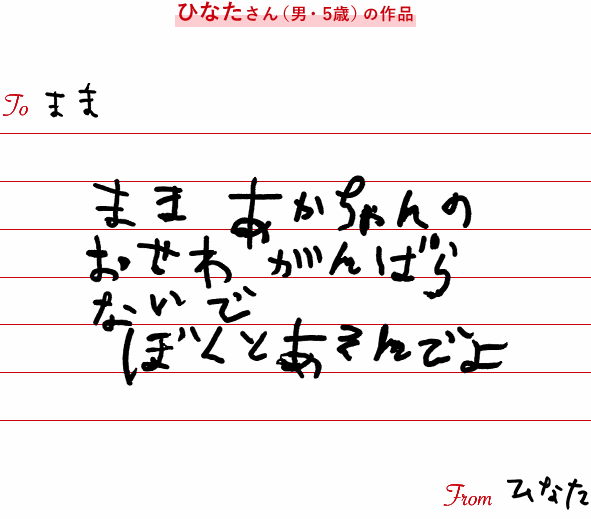 ひなたさん(男・5歳)の作品
To まま
まま あかちゃんの
おせわ がんばら
ないで
ぼくとあそんでよ
From ひなた